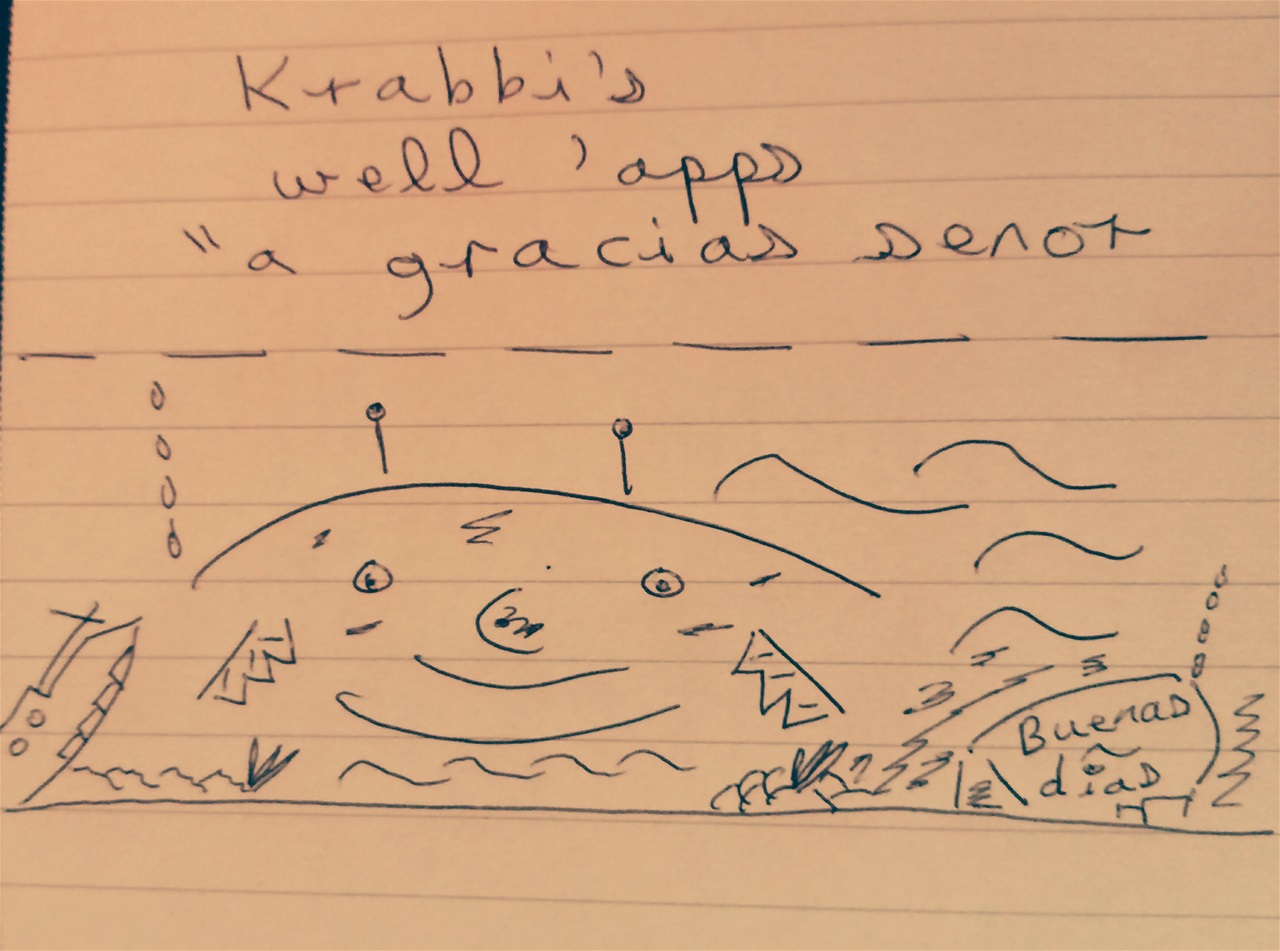 Krabbi's
well 'apps
"a gracias senor
Buenas
dias